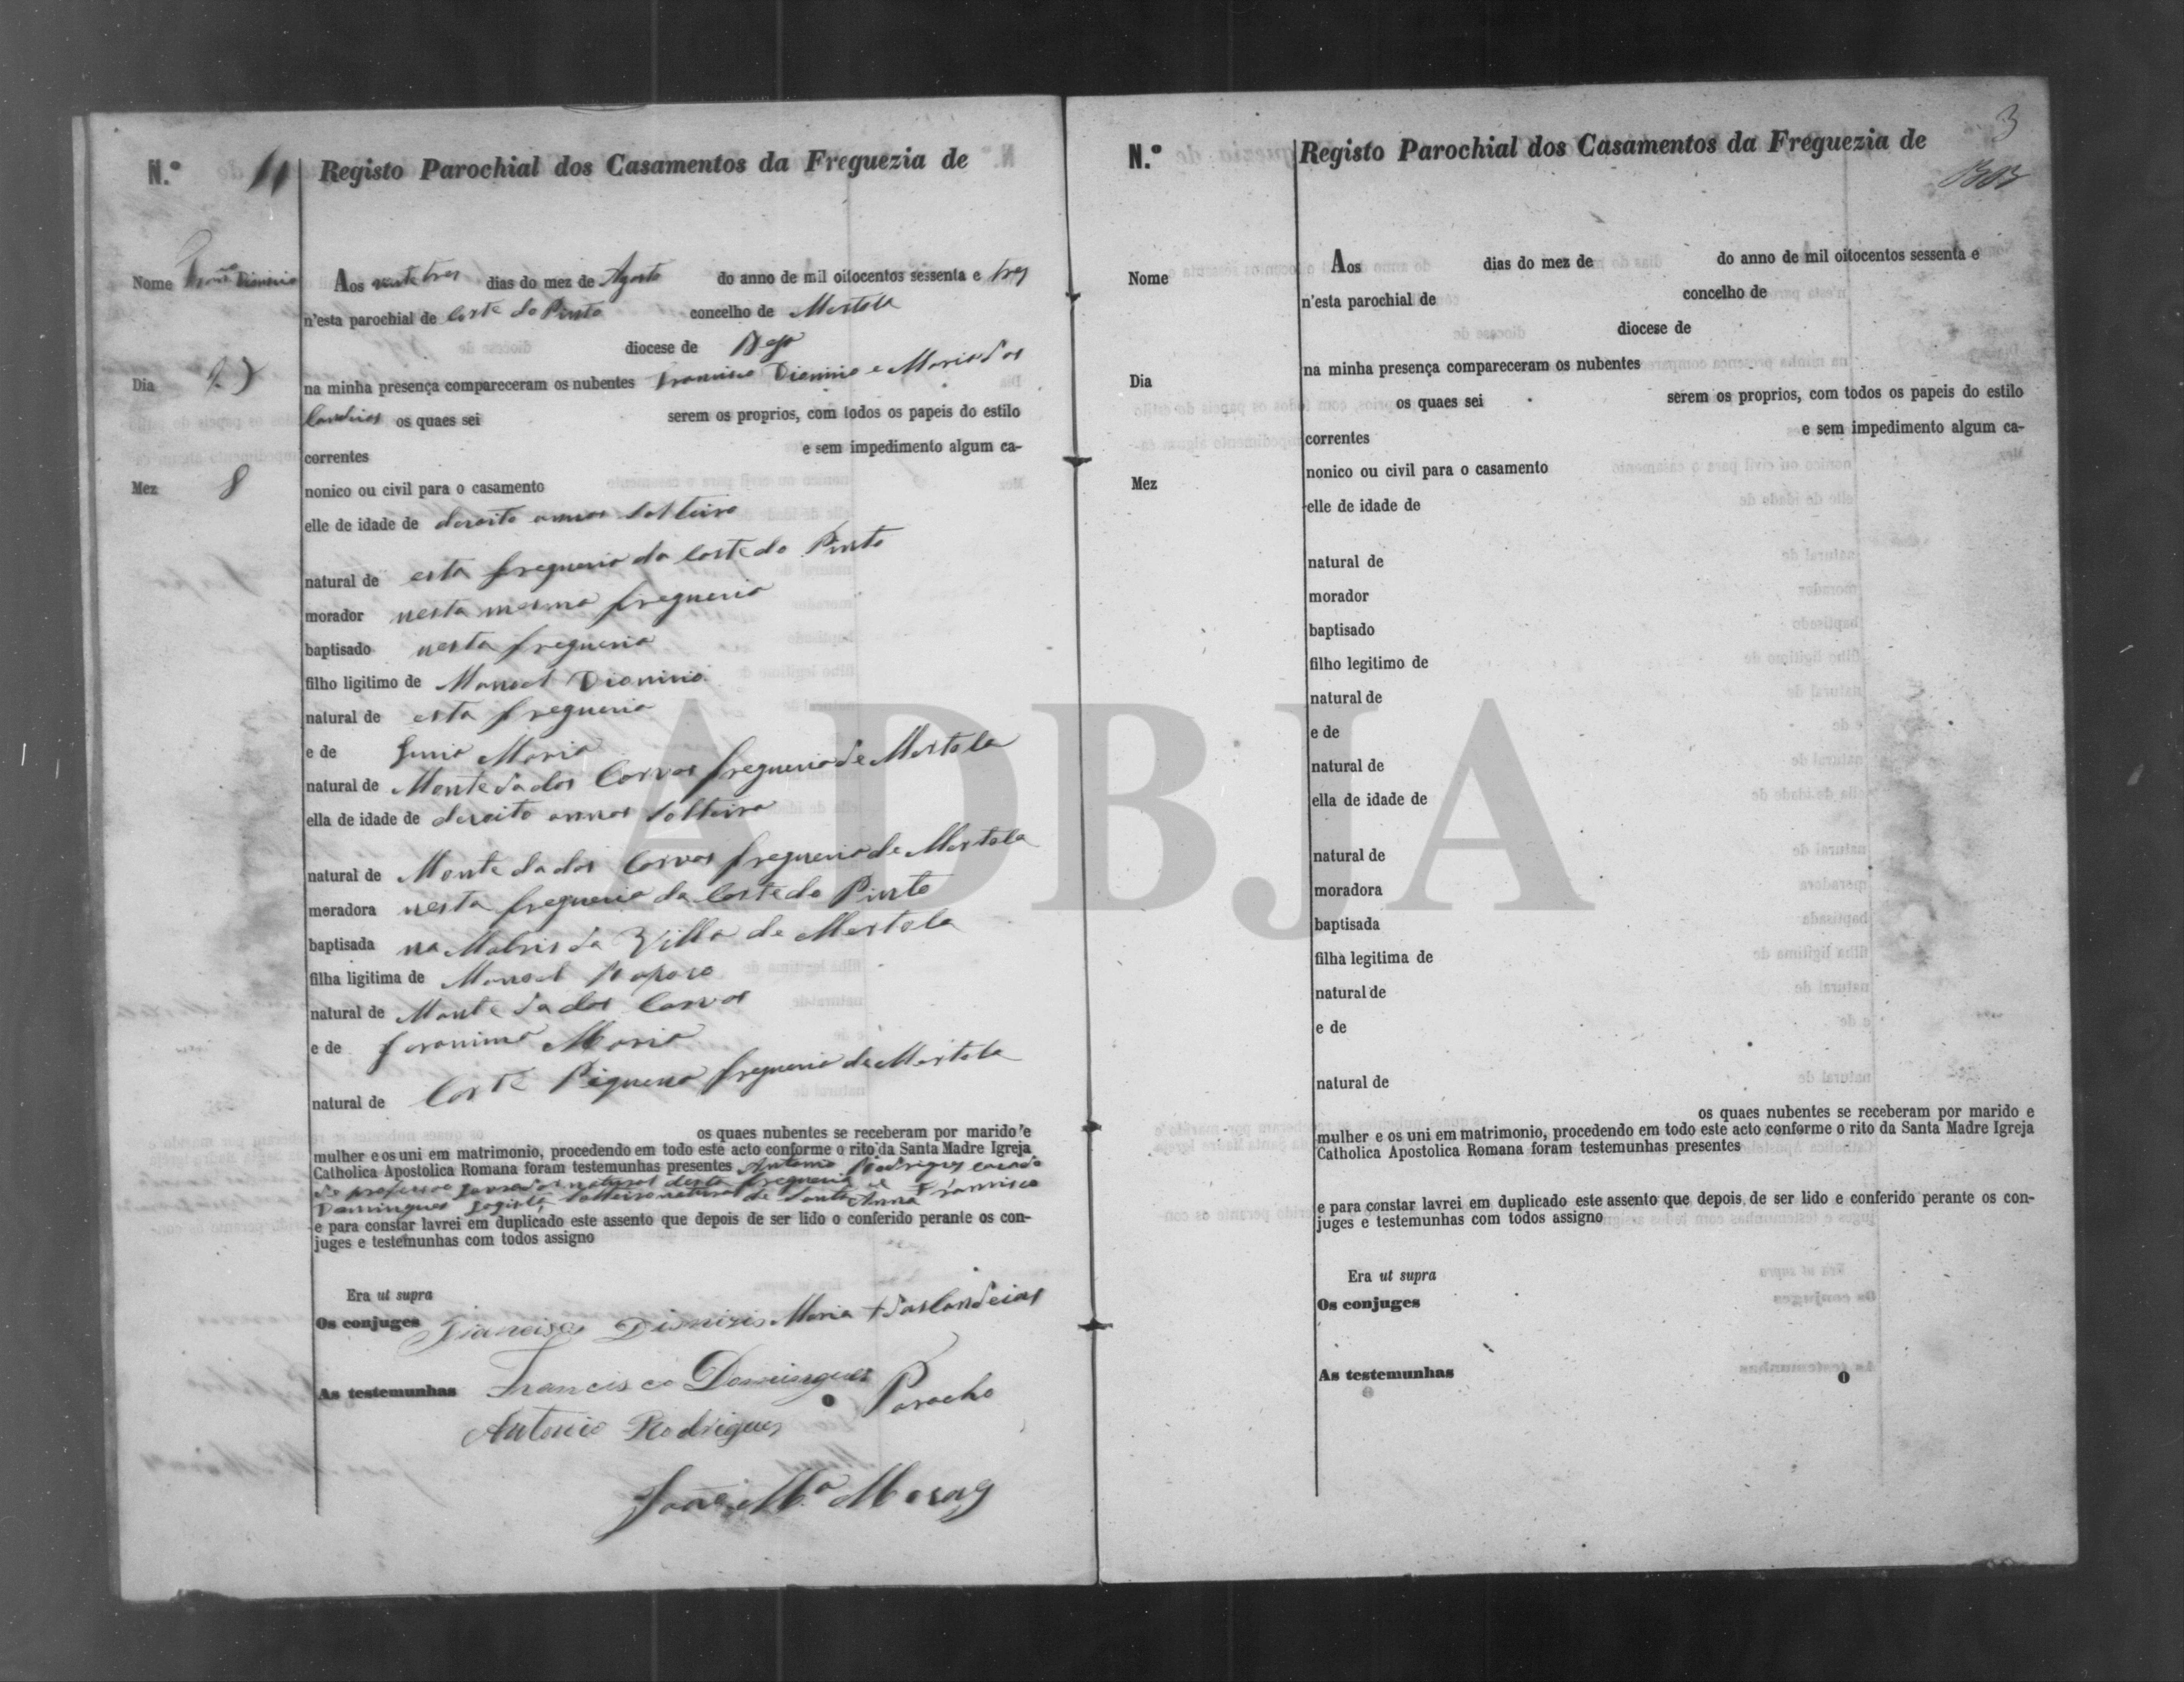 N.º 11 Registo Parochial dos Casamentos da Freguezia de
Nome Franco Dionisio
Aos vinte tres dias do mez de Agosto do anno de mil oitocentos sessenta e tres
n'esta parochial de Corte do Pinto concelho de Mertola
diocese de Beja
Dia 23
na minha presença compareceram os nubentes Francisco Dionisio e Maria das
Candeias os quaes sei serem os proprios, com todos os papeis do estilo
correntes e sem impedimento algum ca-
Mez 8
nonico ou civil para o casamento
elle de idade de desoito annos solteiro
natural de esta freguesia da Corte do Pinto
morador nesta mesma freguesia
baptisado nesta freguesia
filho ligitimo de Manoel Dionisio
natural de esta freguesia
e de Maria
natural de Monte da dos Corvos freguesia de Mertola
ella de idade de desoito annos solteira
natural de Monte da dos Corvos freguesia de Mertola
moradora nesta freguesia da Corte do Pinto
baptisada na Matris da Villa de Mertola
filha ligitima de Manoel Raposo
natural de Monte da dos Corvos
e de Jeronima Maria
natural de Corte Piquena freguesia de Mertola
os quaes nubentes se receberam por marido e
mulher e os uni em matrimonio, procedendo em todo este acto conforme o rito da Santa Madre Igreja
Catholica Apostolica Romana foram testemunhas presentes Antonio Rodrigues casado
natural desta freguesia e Francisco
Domingues logista, solteiro natural de Santa Anna
e para constar lavrei em duplicado este assento que depois de ser lido o conferido perante os con-
juges e testemunhas com todos assigno
Era ut supra
Os conjuges Francisco Dionizio Maria + das Candeias
As testemunhas Francisco Domingues
O Parocho
Antonio Rodrigues
João Mª Moraes
3
N.º Registo Parochial dos Casamentos da Freguezia de
Nome
Aos dias do mez de do anno de mil oitocentos sessenta e
n'esta parochial de concelho de
diocese de
Dia
na minha presença compareceram os nubentes
os quaes sei serem os proprios, com todos os papeis do estilo
correntes e sem impedimento algum ca-
Mez
nonico ou civil para o casamento
elle de idade de
natural de
morador
baptisado
filho legitimo de
natural de
e de
natural de
ella de idade de
natural de
moradora
baptisada
filha legitima de
natural de
e de
natural de
os quaes nubentes se receberam por marido e
mulher e os uni em matrimonio, procedendo em todo este acto conforme o rito da Santa Madre Igreja
Catholica Apostolica Romana foram testemunhas presentes
e para constar lavrei em duplicado este assento que depois de ser lido e conferido perante os con-
juges e testemunhas com todos assigno
Era ut supra
Os conjuges
As testemunhas
O
ADBJA